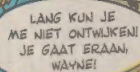 LANG KUN JE
ME NIET ONTWIJKEN!
JE GAAT ERAAN,
WAYNE!